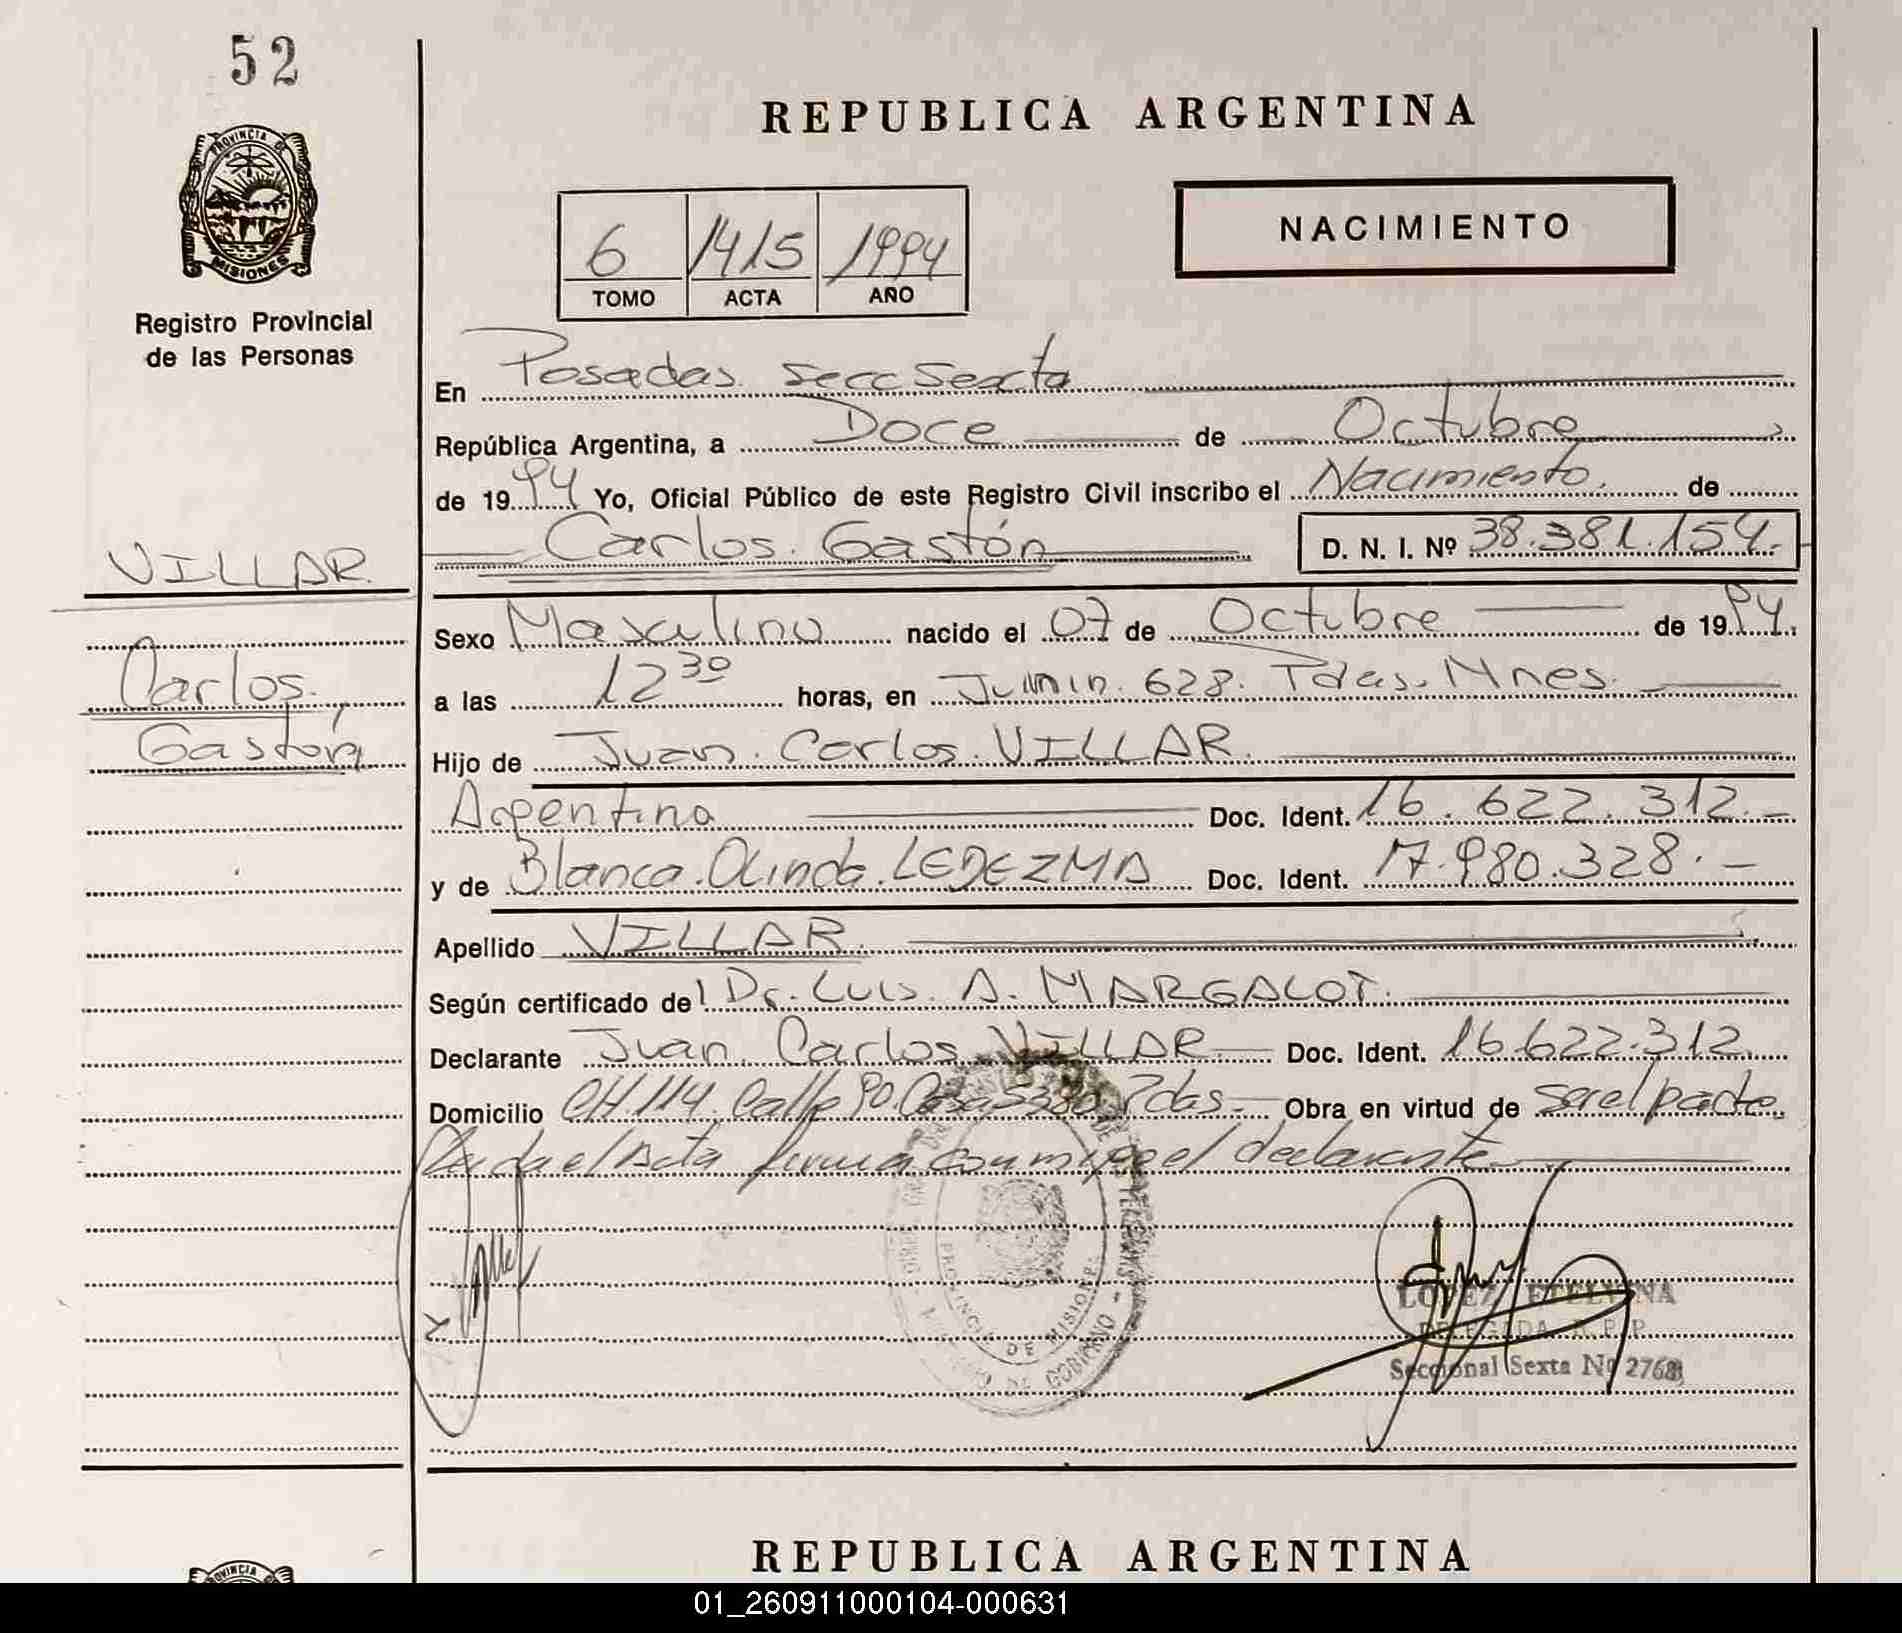 52
REPUBLICA ARGENTINA
PROVINCIA DE
MISIONES
Registro Provincial
de las Personas
NACIMIENTO
6 1415 1994
TOMO ACTA AÑO
En Posadas. Secc Sexta
República Argentina, a Doce de Octubre
de 1994 Yo, Oficial Público de este Registro Civil inscribo el Nacimiento. de
Carlos. Gastón D. N. I. Nº 38.381.154.-
VILLAR
Carlos.
Gastón
Sexo Masculino nacido el 07 de Octubre de 1994.
a las 12 30 horas, en Junin. 628. Pdas. Mnes.
Hijo de Juan. Carlos. VILLAR.
Argentina Doc. Ident. 16.622.312.-
y de Blanca. Olinda. LEDEZMA Doc. Ident. 17.980.328.-
Apellido VILLAR.
Según certificado del Dr. Luis. A. MARGALOT.
Declarante Juan. Carlos VILLAR. Doc. Ident. 16.622.312.
Domicilio CH.114. Calle 90. Casa Pdas. Obra en virtud de ser el padre.
Leida el Acta firma conmigo el declarante
PROVINCIA DE MISIONES
DE GOBIERNO
LOPEZ, ETELVINA
DELEGADA R.P.P.
Seccional Sexta Nº 2768
REPUBLICA ARGENTINA
PROVINCIA DE
01_260911000104-000631